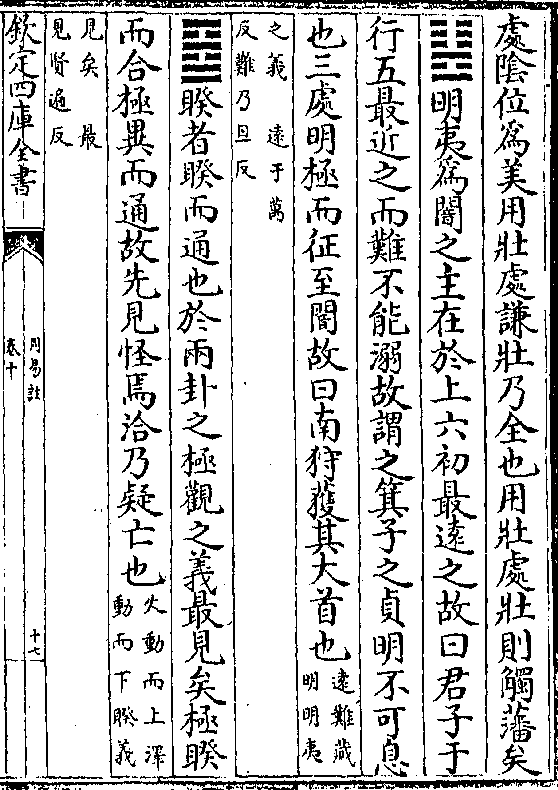 處陰位爲美用壯處謙壯乃全也用壯處壯則觸藩矣
䷣明夷爲闇之主在於上六初最逺之故曰君子于
行五最近之而難不能溺故謂之箕子之貞明不可息
也三處明極而征至闇故曰南狩獲其大首也
逺難藏
明明夷
之義逺于萬
反難乃旦反
䷥睽者睽而通也於兩卦之極觀之義最見矣極睽
而合極異而通故先見怪焉洽乃疑亡也
火動而上澤
動而下睽義
見矣最
見賢遍反
欽定四庫全書
周易註
卷十
十七